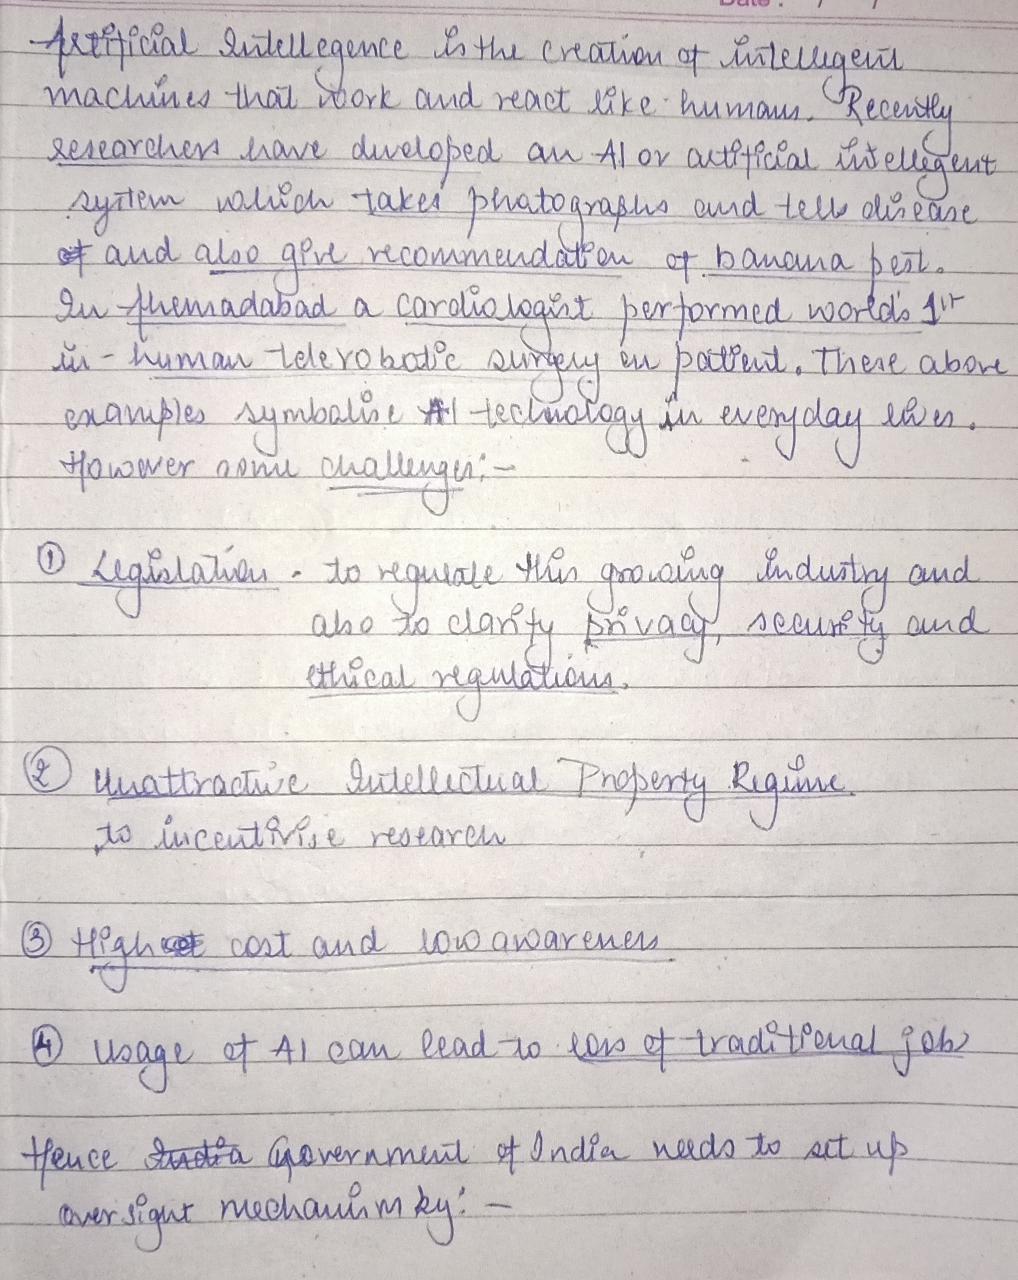 Date : / /
Artificial Intellegence is the creation of intelligent
machines that work and react like humans. Recently
researchers have developed an AI or artificial intellegent
system which takes photographs and tells disease
of and also give recommendation of banana pest.
In Ahemadabad a cardiologist performed world's 1st
in-human telerobotic surgery in patient. These above
examples symbolise AI technology in everyday lives.
However some challenges:-
① Legislation - to regulate this growing industry and
also to clarify privacy, security and
ethical regulations.
② Unattractive Intellectual Property Regime
to incentivise research
③ High cost cost and low awareness
④ Usage of AI can lead to loss of traditional jobs
Hence India Government of India needs to set up
oversight mechanism by:-